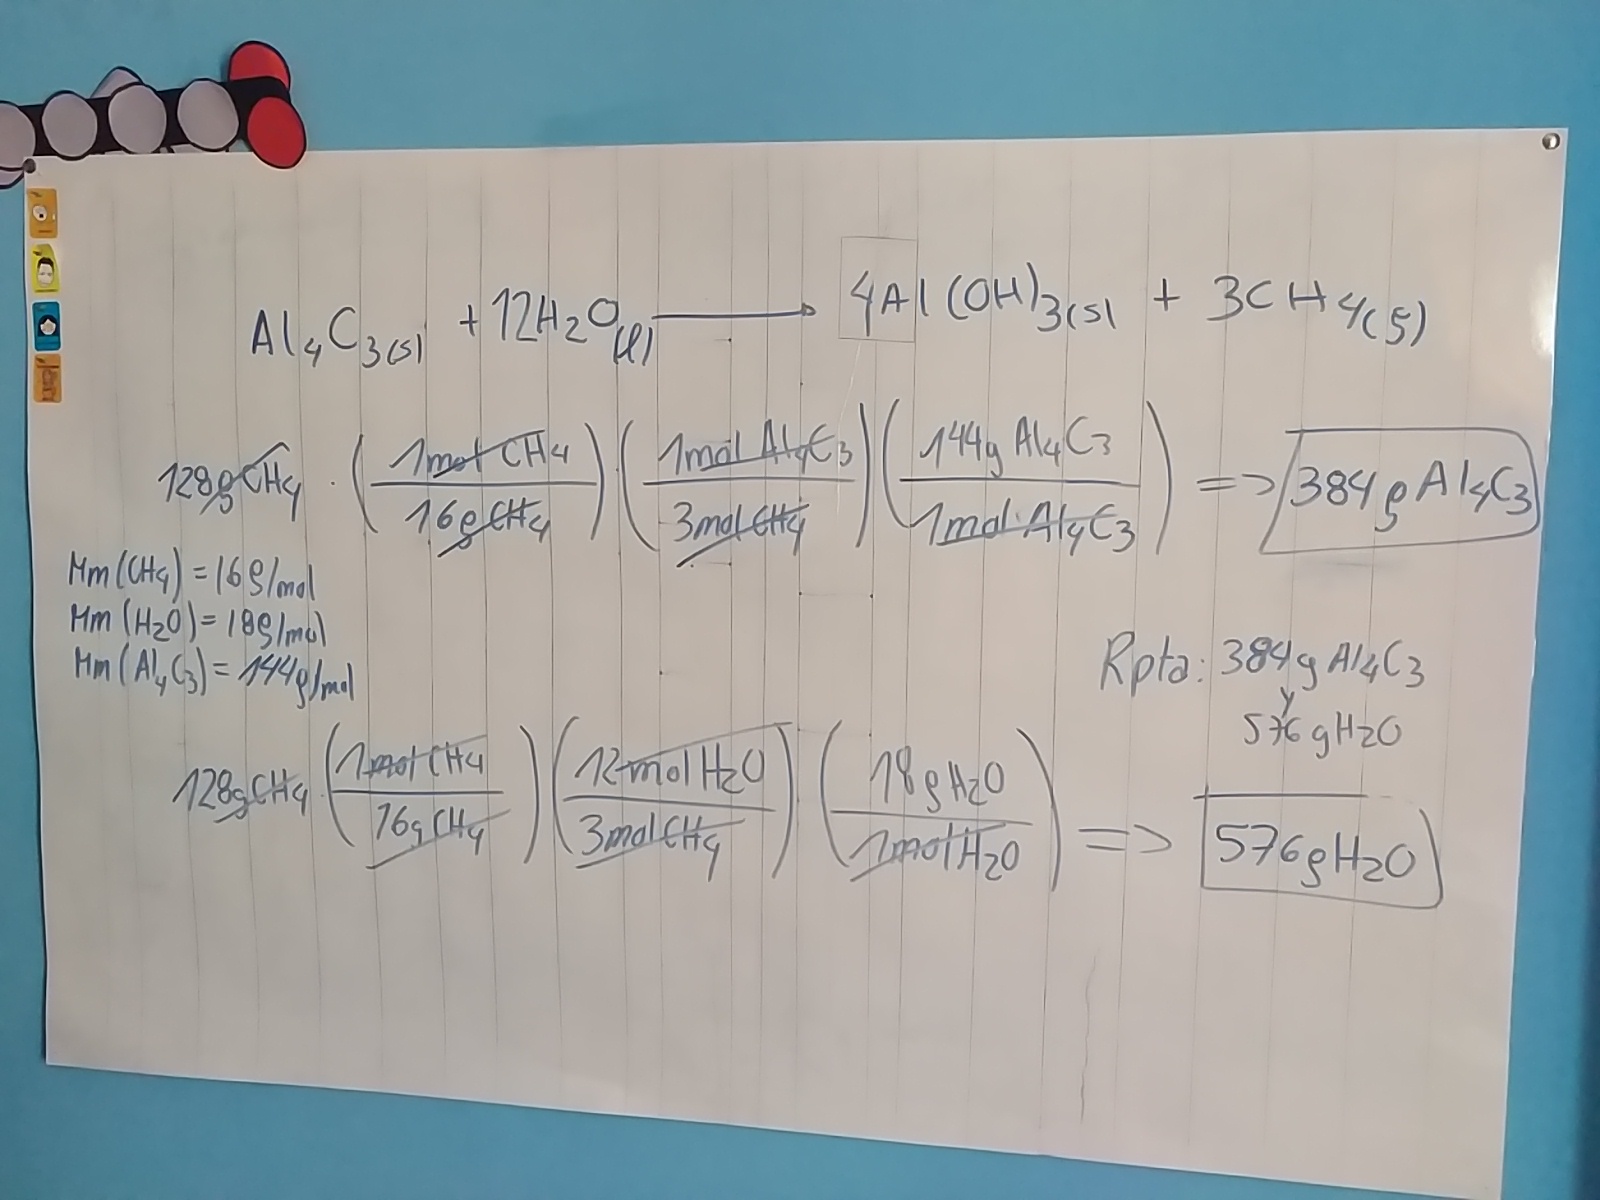 Al₄C₃(s) + 12H₂O(l) → 4Al(OH)₃(s) + 3CH₄(g)
128gCH₄ · (1mol CH₄ / 16gCH₄) (1mol Al₄C₃ / 3molCH₄) (144g Al₄C₃ / 1mol Al₄C₃) => 384g Al₄C₃
Mm(CH₄) = 16g/mol
Mm(H₂O) = 18g/mol
Mm(Al₄C₃) = 144g/mol
Rpta: 384g Al₄C₃
y
576 gH₂O
128gCH₄ · (1mol CH₄ / 16g CH₄) (12molH₂O / 3molCH₄) (18gH₂O / 1molH₂O) => 576gH₂O